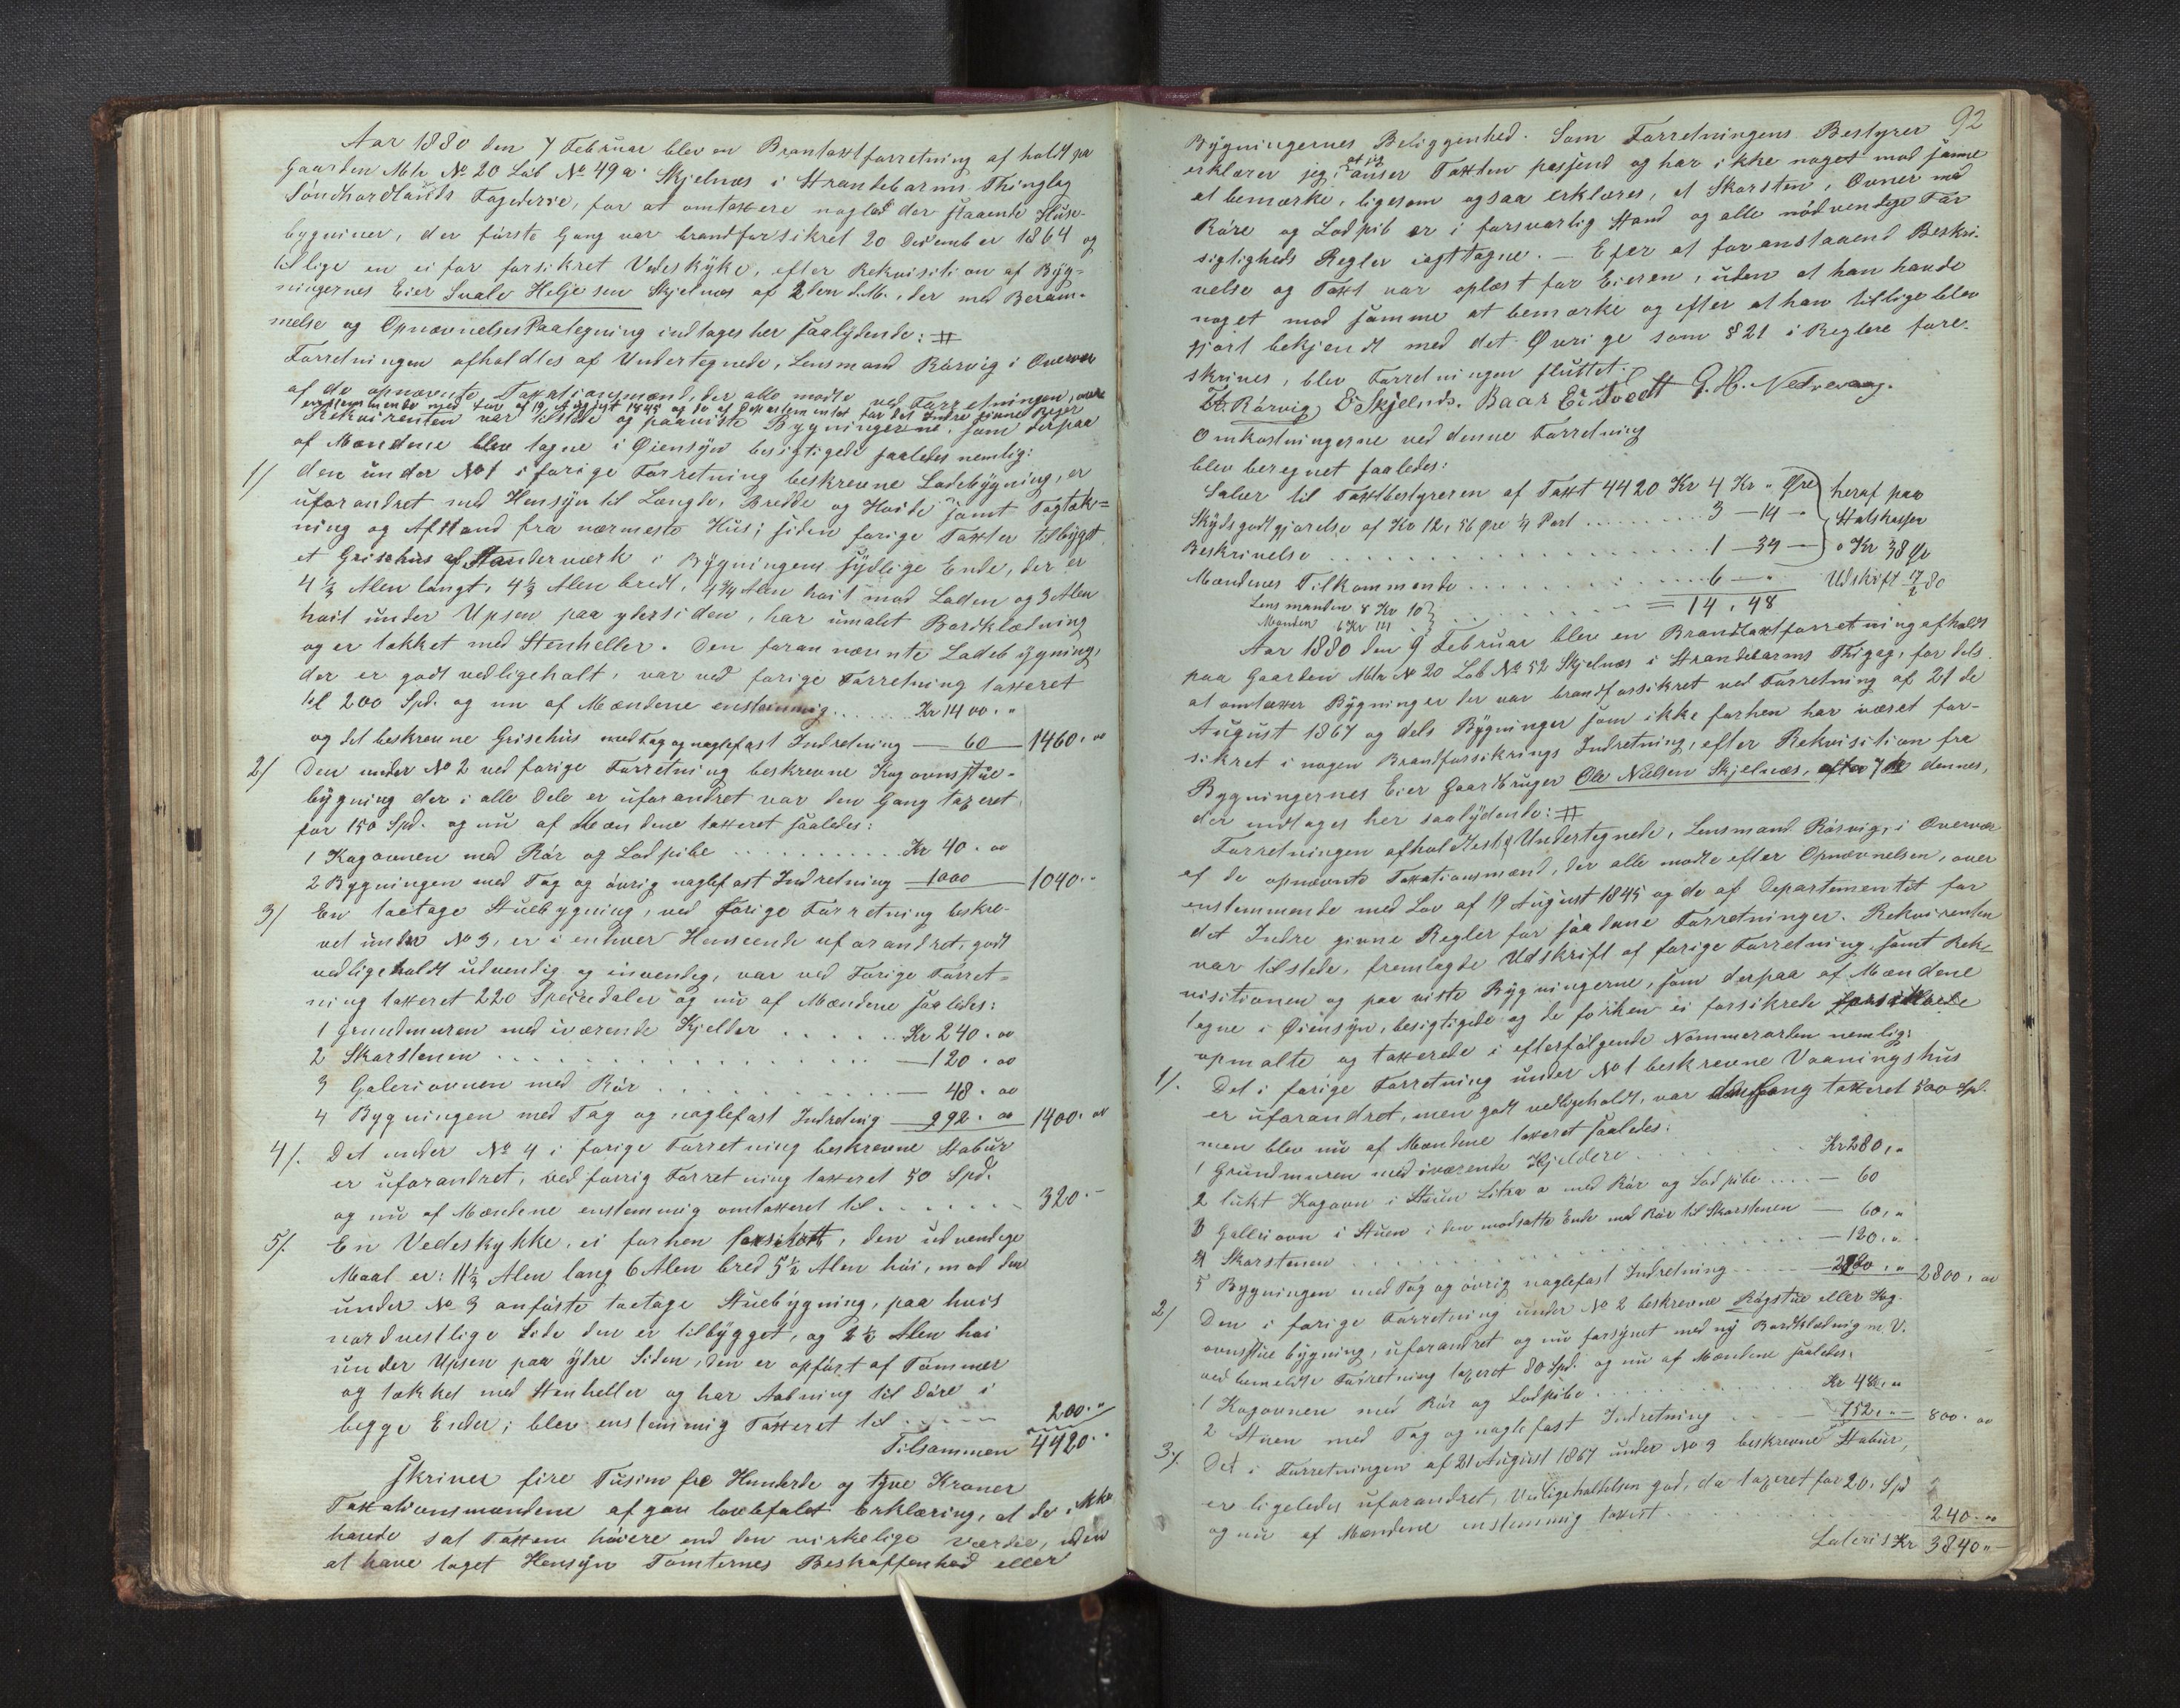 Aar 1880 den 7 Februar blev en Brantaxtforretning af holdt paa
Gaarden Mtr No 20 Løb No 49a Skjelnæs i Strandebarms Thinglag
Søndhordlands Fogderie, for at omtaxere nogle der staaende Huse-
bygniner, der første Gang var brandforsikret 20 December 1864 og
tillige en ei før forsikret Vedeskykke, efter Rekvisition af Byg-
ningernes Eier Svale Heljesen Skjelnæs af 2den d.M., der med Beram-
melse og Opnævnelses Paategning indtages her saalydende: #
Forretningen afholdtes af Undertegnede, Lensmand Rørvig i Overvær
af de opnævnte Taxtationsmænd, der alle mødte ved Forretningen, over
ensstemmende med Lov af 19 August 1845 og de af Departementet for det Indre givne Regler
Rekvirenten var tilstede og paaviste Bygningerne, som derpaa
af Mændene blev tagne i Øiensyn besigtigede saaledes nemlig:
1/ den under No 1 i forige Forretning beskrevne Ladebygning, er
uforandret med Hensyn til Længde, Bredde og Høide samt Tagtæk=
ning og Afstand fra nærmeste Hus; siden forige Taxter tilbygt
et Grisehus af Standerværk i Bygningens sydlige Ende, der er
4½ Alen langt, 4½ Alen bredt, 4¾ Alen høit mod Laden og 3 Alen
høit under Upsen paa ydersiden, har umalet Bordklædning
og er tækket med Stenheller. Den foran nævnte Ladebygning,
der er godt vedligeholt, var ved forige Forretning taxeret
til 200 Spd. og nu af Mændene enstemmig..... Kr 1400 . "
og det beskrevne Grisehus med Tag og naglefast Indretning — 60 — 1460. oo
2/ Den under No 2 ved forige Forretning beskrevne Kogovnsstue-
bygning der i alle Dele er uforandret var den Gang taxeret
for 150 Spd. og nu af Mændene taxeret saaledes:
1 Kogovnen med Rør og Lodpibe . . . . . . . . . . Kr 40 . oo
2 Bygningen med Tag og øvrig naglefast Indretning — 1000 — 1040 . "
3/ En toetage Stuebygning, ved forige Forretning beskre-
vet under No 3, er i enhver Henseende uforandret, godt
vedligeholdt udvendig og invendig, var ved Forige Forret=
ning taxeret 220 Speciedaler og nu af Mændene saaledes:
1 Grundmuren med iværende Kjelder . . . . . Kr 240 . oo
2 Skorstenen . . . . . . . . . . . . . . — 120 . oo
3 Galeriovnen med Rør . . . . . . . . . . — 48 . oo
4 Bygningen med Tag og naglefast Indretnig — 992 . oo 1400. oo
4/. Det under No 4 i forige Forretning beskrevne Stabur
er uforandret, ved forrig Forretning taxeret 50 Spd.
og nu af Mændene enstemmig omtaxeret til . . . . . . 320 . –
5/. En Vedeskykke, ei forhen forsikret, den udvendige
Maal er: 11½ Alen lang 6 Alen bred 5½ Alen høi, mod den
under No 3 anførte toetage Stuebygning, paa hvis
nordvestlige Side den er tilbygget, og 2½ Alen høi
under Upsen paa ydre Siden, den er opført af Tømmer
og tækket med Stenheller og har Aabning til Døre i
begge Ender; blev enstemmig Taxeret til . . . . . 200 . "
Tilsammen 4420 . "
skriver fire Tusinn fire Hunderde og tyve Kroner
Taxationsmændene afgav lovbefalet Erklæring, at de ikke
havde sat Taxten høiere end den virkelige værdie, uden
at have taget Hensyn Tomternes Beskaffenhed eller
92
Bygningernes Beliggenhed. Som Forretningens Bestyrer
erklærer jeg, at jeg anser Taxten passend og har ikke noget mod samme
at bemærke, ligesom ogsaa erklæres, at Skorsten, Ovner med
Røre og Lodpib er i forsvarlig Stand og alle nødvendige For
sigtigheds Regler iagttagne. — Efter at foranstaaend Beskri-
velse og Taxt var oplæst for Eieren, uden at han havde
noget mod samme at bemærke og efter at han tillige blev
gjort bekjendt med det Øvrige som § 21 i Reglere fore-
skrives, blev Forretningen sluttet.
Rørvig E Skjelnæs. Baar Eitvedt G. H. Nedrevaag.
Omkostningerne ved denne Forretning
blev beregnet saaledes:
Salær til Taxtbestyreren af Taxt 4420 Kr 4 Kr " Øre heraf paa
Skydsgodtgjørelse af Kr 12, 56 Øre ¼ Part . . . . . . . . . 3 — 14 — Statskassen
Beskrivelse . . . . . . . . . . . . . . . . . 1 — 34 — 0 Kr 38 Ør
Mændenes Tilkommende . . . . . . . . . . 6 — " Udskrift 17/2 80
Lensmanden 8 Kr 10
Manden 6 Kr . . . . . . . = 14, 48
Aar 1880 den 9 Februar blev en Brandtaxtforretning afholdt
paa Gaarden Mtr No 20 Løb No 52 Skjelnæs i Strandebarms Thigag, for dels
at omtaxer Bygninger der var brandforsikret ved Forretning af 21 de
August 1867 og dels Bygninger som ikke forhen har været for-
sikret i nogen Brandforsikrings Indretning, efter Rekvisition fra
Bygningernes Eier Gaardbruger Ole Nielsen Skjelnæs, af 7 dennes,
der indtages her saalydende: #
Forretningen afholdtes af Undertegnede, Lensmand Rørvig, i Overvær
af de opnævnte Taxationsmænd, der alle mødte efter Opnævnelsen, over
enstemmende med Lov af 19 August 1845 og de af Departementet for
det Indre givne Regler for saadane Forretninger. Rekvirenten
var tilstede, fremlagde Udskrift af forige Forretning samt Rek-
visitionen og paaviste Bygningerne, som derpaa af Mændene
tagne i Øiensyn, besigtigede og de forhen ei forsikrede
opmalte og taxerede i efterfølgende Nommerorden nemlig:
1/. Det i forige Forretning under No 1 beskrevne Vaaningshus
er uforandret, men godt vedligeholdt, var den Gang taxeret 500 Spd.
men blev nu af Mændene taxeret saaledes:
1 Grundmuren med iværende Kjeldere . . . . . . . . Kr 280, "
2 lukt Kogovn i Stuen Litra a med Rør og Lodpibe . . . . — 60
3 Galleriovn i Stuen i den modsatte Ende med Rør til Skorstenen — 60, "
4 Skorstenen . . . . . . . . . . . . . . — 120. "
5 Bygningen med Tag og øvrig naglefast Indretning . . . . — 2280, " 2800, oo
2/ Den i forige Forretning under No 2 beskrevne Røgstue eller Kog-
ovnstue bygning, uforandret og nu forsynet med ny Bordklædnig m. V.
ved bemeldte Forretning taxeret 80 Spd. og nu af Mændene saaledes:
1 Kogovnen med Rør og Lodpibe . . . . . . . . . Kr 48, "
2 Stuen med Tag og nagle fast Indretning . . . . — 752, " — 800 . oo
3/. Det i Forretningen af 21 August 1867 under No 3 beskrevne Stabur,
er ligeledes uforandret, Vedligeholdelsen god, da taxeret for 20. Spd
og nu af Mændene enstemmig taxert . . . . . . . . . 240 . oo
Lateris Kr 3840 "